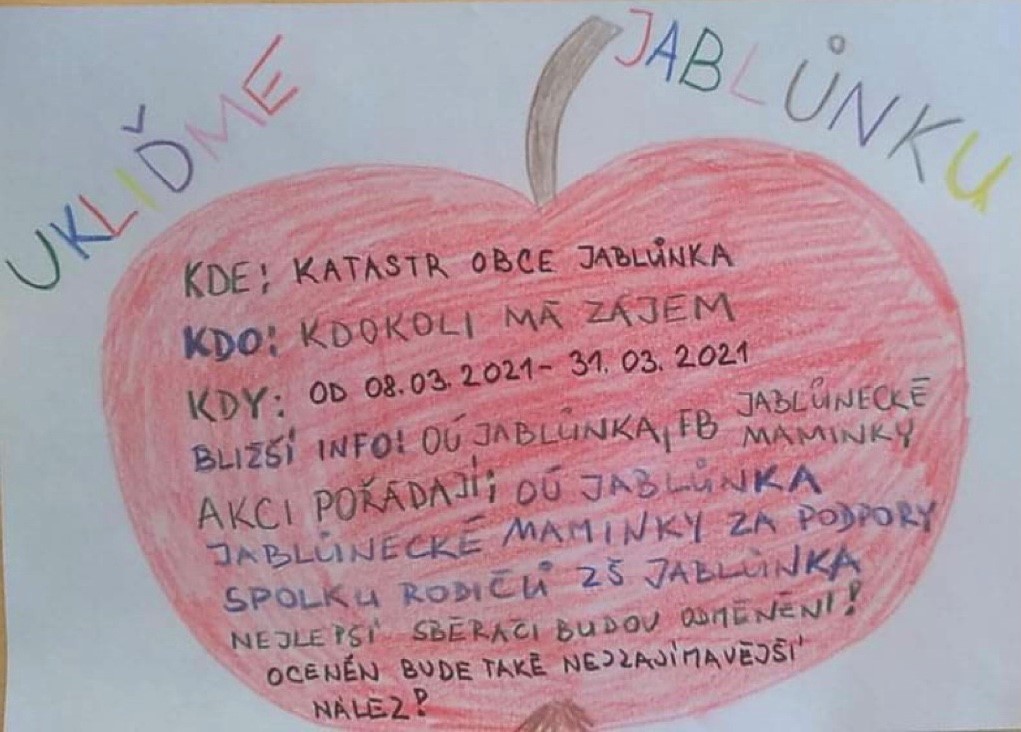 UKLIĎME JABLŮNKU
KDE: KATASTR OBCE JABLŮNKA
KDO: KDOKOLI MÁ ZÁJEM
KDY: OD 08.03.2021- 31.03.2021
BLIŽŠÍ INFO: OÚ JABLŮNKA, FB JABLŮNECKÉ
MAMINKY
AKCI POŘÁDAJÍ: OÚ JABLŮNKA
JABLŮNECKÉ MAMINKY ZA PODPORY
SPOLKU RODIČŮ ZŠ JABLŮNKA
NEJLEPŠÍ SBĚRAČI BUDOU ODMĚNĚNI!
OCENĚN BUDE TAKÉ NEJZAJÍMAVĚJŠÍ
NÁLEZ!